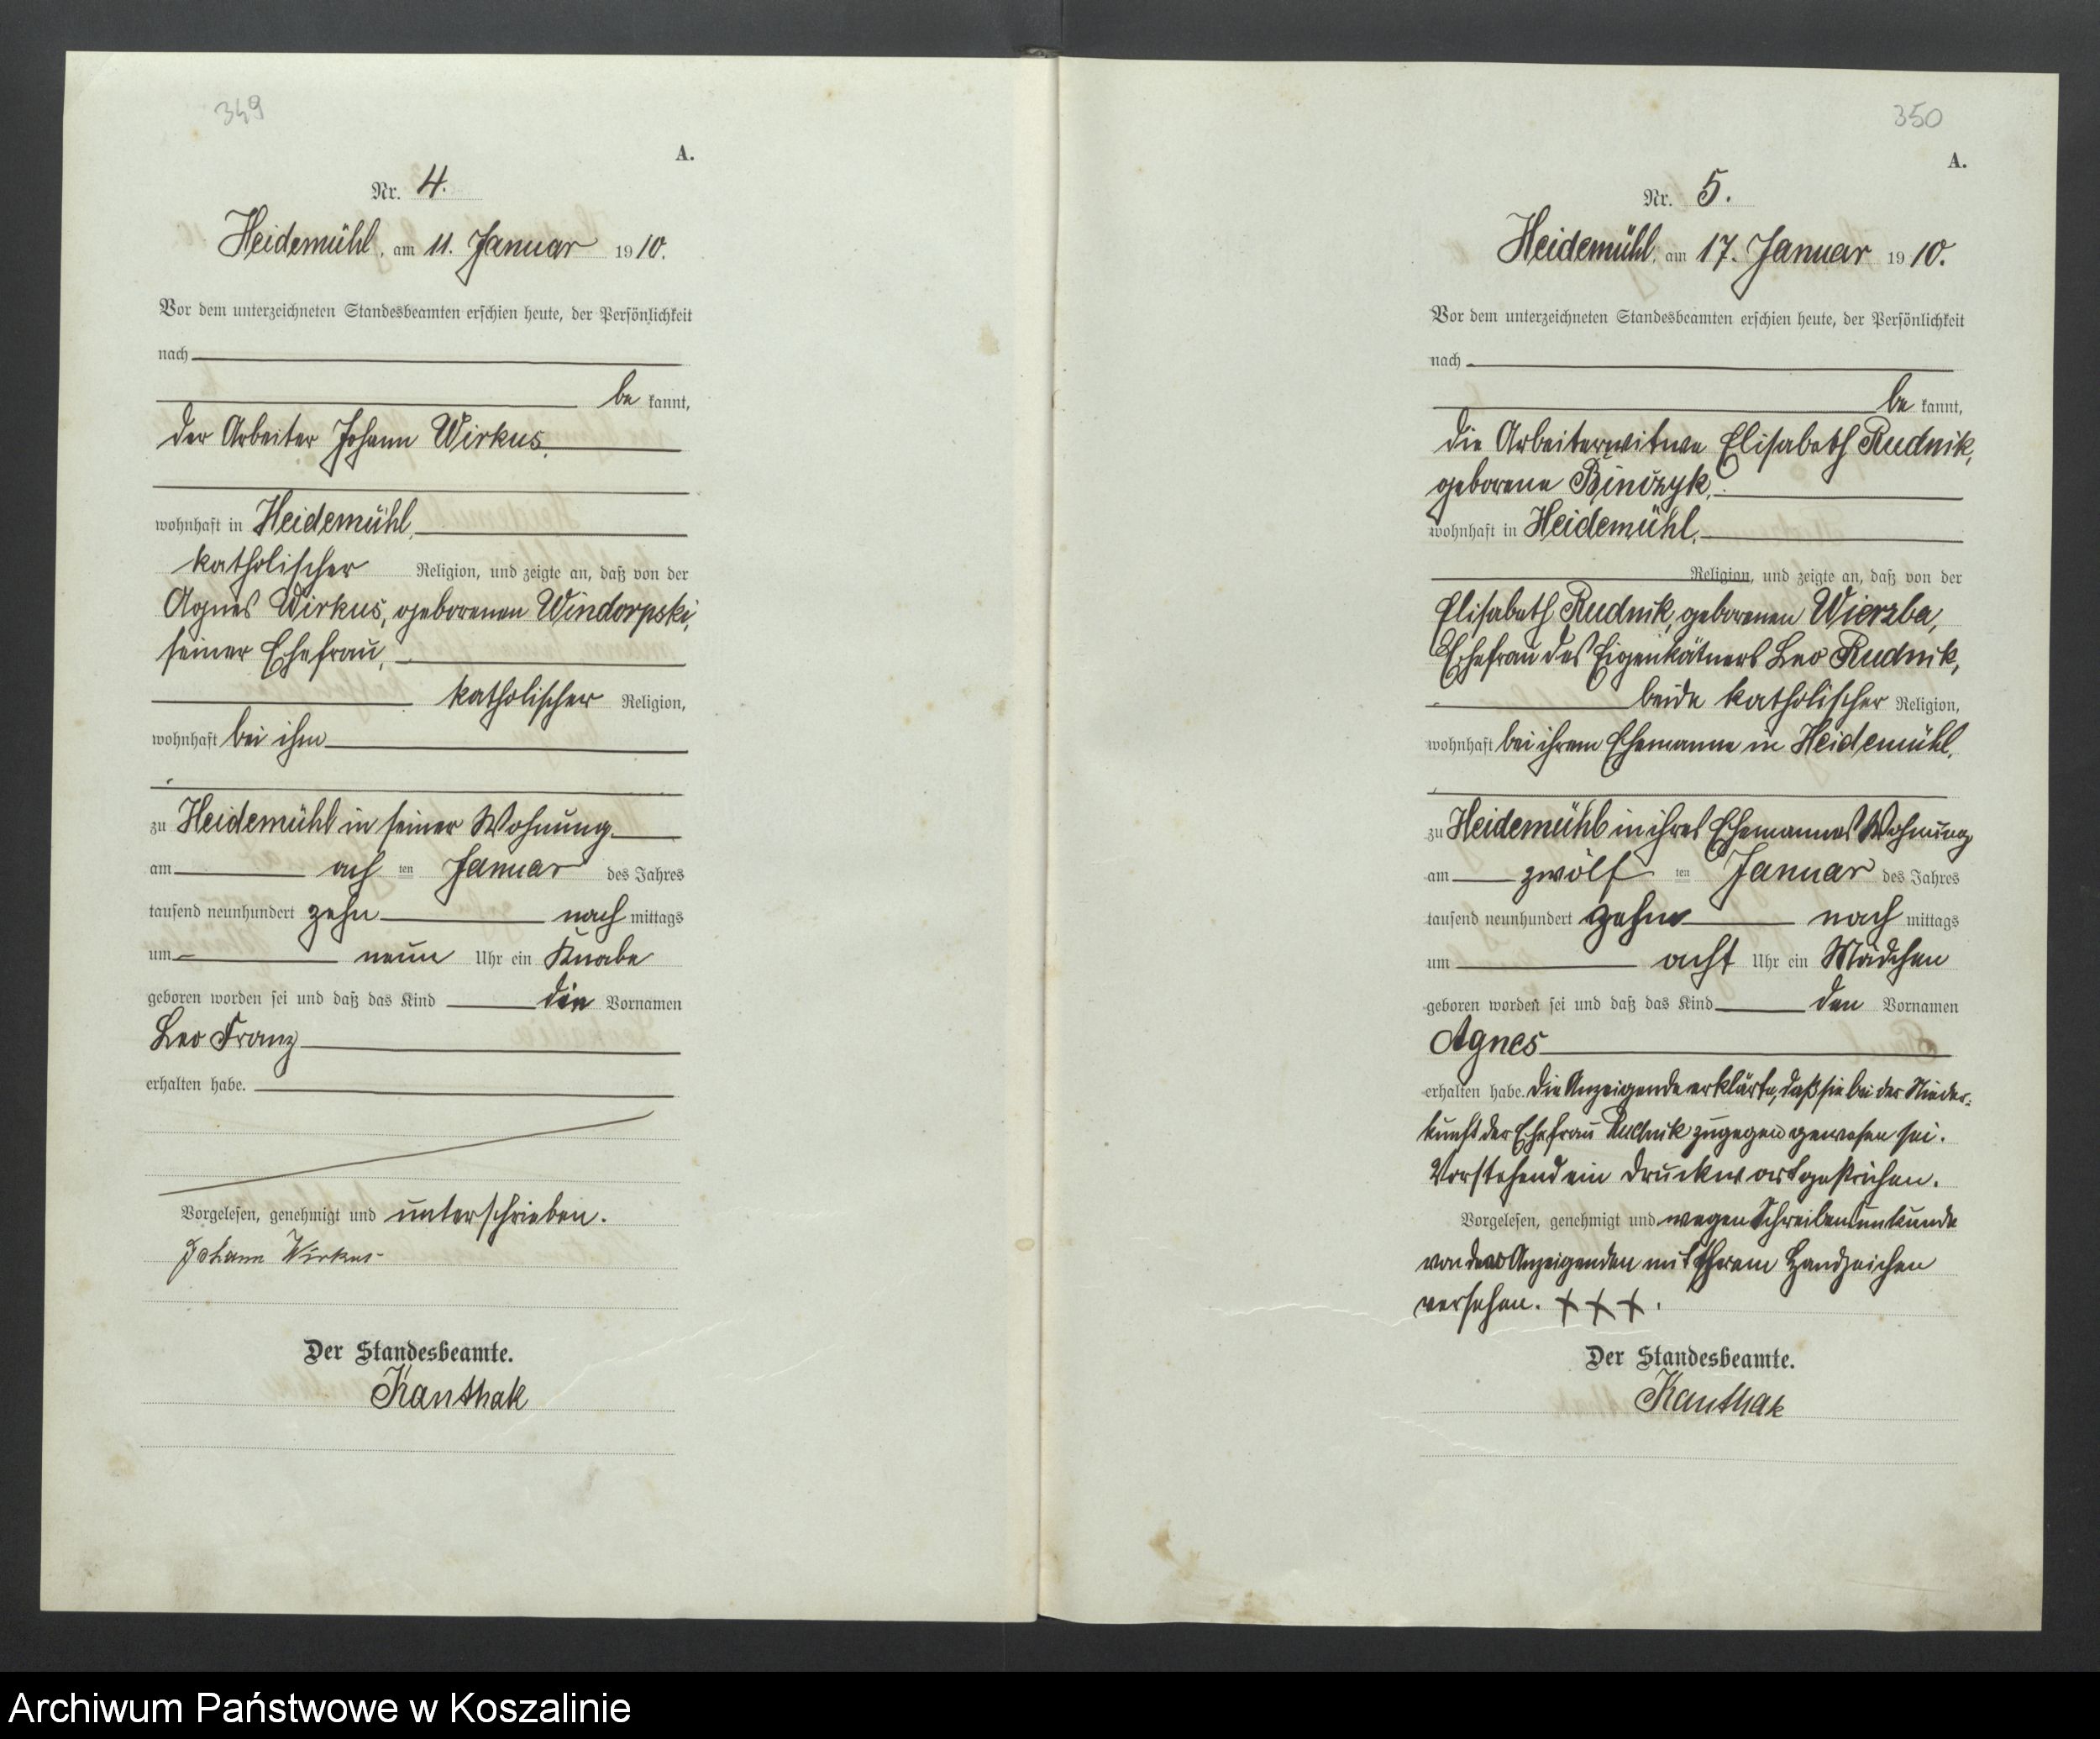 349
A.
Nr. 4.
Heidemühl, am 11. Januar 1910.
Vor dem unterzeichneten Standesbeamten erschien heute, der Persönlichkeit
nach
be kannt,
der Arbeiter Johann Wirkus,
wohnhaft in Heidemühl,
katholischer Religion, und zeigte an, daß von der
Agnes Wirkus, geborenen Windorpski,
seiner Ehefrau,
katholischer Religion,
wohnhaft bei ihm
zu Heidemühl in seiner Wohnung
am ach ten Januar des Jahres
tausend neunhundert zehn nach mittags
um neun Uhr ein Knabe
geboren worden sei und daß das Kind die Vornamen
Leo Franz
erhalten habe.
Vorgelesen, genehmigt und unterschrieben.
Johann Wirkus
Der Standesbeamte.
Kanthak
350
A.
Nr. 5.
Heidemühl, am 17. Januar 1910.
Vor dem unterzeichneten Standesbeamten erschien heute, der Persönlichkeit
nach
be kannt,
die Arbeiterwitwe Elisabeth Rudnik,
geborene Binczyk,
wohnhaft in Heidemühl,
Religion, und zeigte an, daß von der
Elisabeth Rudnik, geborenen Wierzba,
Ehefrau des Eigenkätners Leo Rudnik,
beide katholischer Religion,
wohnhaft bei ihrem Ehemanne in Heidemühl,
zu Heidemühl in ihres Ehemannes Wohnung
am zwölf ten Januar des Jahres
tausend neunhundert zehn nach mittags
um acht Uhr ein Mädchen
geboren worden sei und daß das Kind den Vornamen
Agnes
erhalten habe. Die Anzeigende erklärte, daß sie bei der Nieder-
kunft der Ehefrau Rudnik zugegen gewesen sei.
Vorstehend ein Druckwort gestrichen.
Vorgelesen, genehmigt und wegen Schreibensunkunde
von der Anzeigenden mit ihrem Handzeichen
versehen. + + + .
Der Standesbeamte.
Kanthak
Archiwum Państwowe w Koszalinie